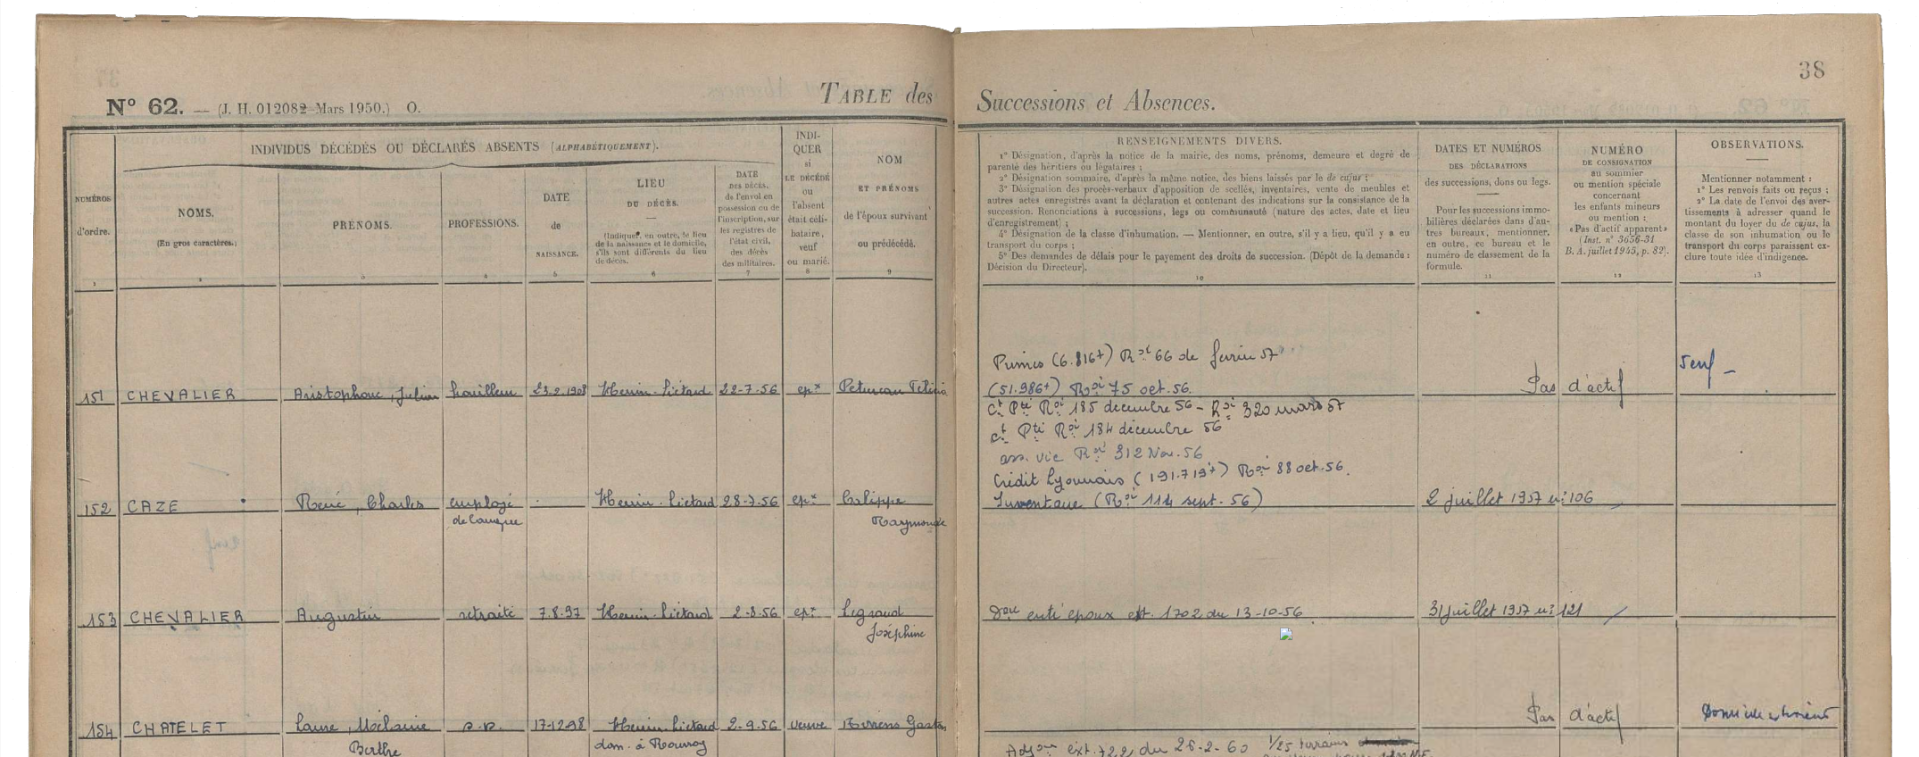 38
N° 62. — (J. H. 012082 - Mars 1950.) O.
TABLE des Successions et Absences.
NUMÉROS d'ordre.
INDIVIDUS DÉCÉDÉS OU DÉCLARÉS ABSENTS (ALPHABÉTIQUEMENT).
NOMS.
(En gros caractères.)
PRÉNOMS.
PROFESSIONS.
DATE
de
NAISSANCE.
LIEU
DU DÉCÈS.
(Indiquer, en outre, le lieu
de la naissance et le domicile,
s'ils sont différents du lieu
de décès.
DATE
DES DÉCÈS,
de l'envoi en
possession ou de
l'inscription, sur
les registres de
l'état civil,
des décès
des militaires.
INDI-
QUER
si
LE DÉCÉDÉ
ou
l'absent
était céli-
bataire,
veuf
ou marié.
NOM
ET PRÉNOMS
de l'époux survivant
ou prédécédé.
RENSEIGNEMENTS DIVERS.
1° Désignation, d'après la notice de la mairie, des noms, prénoms, demeure et degré de
parenté des héritiers ou légataires ;
2° Désignation sommaire, d'après la même notice, des biens laissés par le de cujus ;
3° Désignation des procès-verbaux d'apposition de scellés, inventaires, vente de meubles et
autres actes enregistrés avant la déclaration et contenant des indications sur la consistance de la
succession. Renonciations à successions, legs ou communauté (nature des actes, date et lieu
d'enregistrement) ;
4° Désignation de la classe d'inhumation. — Mentionner, en outre, s'il y a lieu, qu'il y a eu
transport du corps ;
5° Des demandes de délais pour le payement des droits de succession. (Dépôt de la demande :
Décision du Directeur).
DATES ET NUMÉROS
DES DÉCLARATIONS
des successions, dons ou legs.
Pour les successions immo-
bilières déclarées dans d'au-
tres bureaux, mentionner,
en outre, ce bureau et le
numéro de classement de la
formule.
NUMÉRO
DE CONSIGNATION
au sommier
ou mention spéciale
concernant
les enfants mineurs
ou mention :
«Pas d'actif apparent»
(Inst. n° 3656-31
B. A. juillet 1945, p. 82).
OBSERVATIONS.
Mentionner notamment :
1° Les renvois faits ou reçus ;
2° La date de l'envoi des aver-
tissements à adresser quand le
montant du loyer du de cujus, la
classe de son inhumation ou le
transport du corps paraissent ex-
clure toute idée d'indigence.
1 2 3 4 5 6 7 8 9 10 11 12 13
Primes (6.816+) Roi 66 de février 57
(51.986+) Roi 75 oct. 56
151 CHEVALIER Aristophane, Julien houilleur 23.2.1908 Henin-Liétard 22-7-56 epx Pas d'actif
ct Pté Roi 185 décembre 56 - Roi 320 mars 57
ct Pté Roi 184 décembre 56
ass. vie Roi 312 Nov. 56
Crédit Lyonnais (191.719+) Roi 88 oct. 56.
152 CAZE René, Charles employé Henin-Liétard 28-7-56 epx Calippe Inventaire (Roi 114 sept. 56) 2 juillet 1957 n: 106
de banque Raymonde
153 CHEVALIER Augustin retraité 7.8.97 Henin-Liétard 2-8-56 epx Legrand Don entre époux ext. 1702 du 13-10-56 31 juillet 1957 n: 121
Joséphine
154 CHATELET Laure, s.p. 17-12-98 Henin-Liétard 2-9-56 veuve Gaston Pas d'actif
Berthe dom. à Rouvroy
ext. 722 du 26-2-60 1/25 terrains